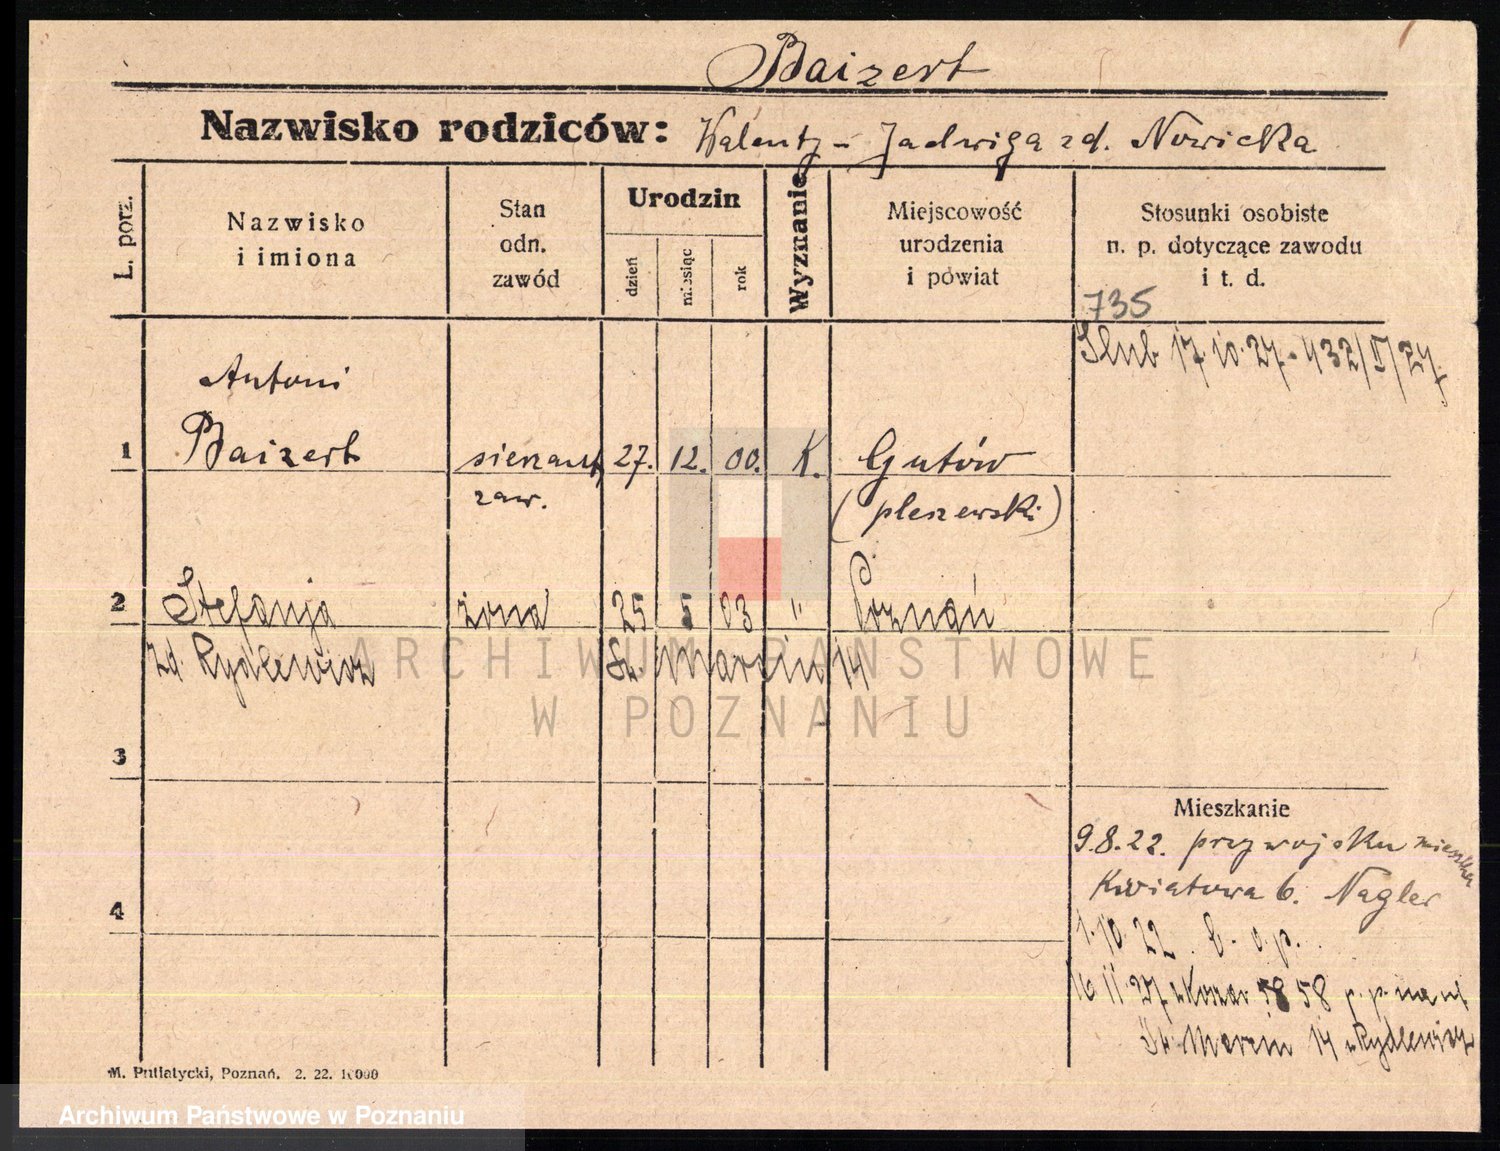 Baizert
Nazwisko rodziców: Walenty - Jadwiga zd. Nowicka
L. porz.
Nazwisko
i imiona
Stan
odn.
zawód
Urodzin
dzień
miesiąc
rok
Wyznanie
Miejscowość
urodzenia
i powiat
Stosunki osobiste
n. p. dotyczące zawodu
i t. d.
735
Ślub 17.10.27 - 432/II/27
Antoni
1 Baizert sierżant 27. 12. 00. K. Gutów
zaw. (pleszewski)
2 Stefanja żona 25 5 03 " Poznań
zd. Rydlewicz Św. Marcin 14
3
4
Mieszkanie
9.8.22. przy wojsku mieszka
Kwiatowa 6. Nagler
1.10.22. b. o.p.
16 11.27 z Koszar 58 p.p. na ul
Św. Marcin 14 u Rydlewicz
M. Putiatycki, Poznań. 2. 22. 10000
ARCHIWUM PAŃSTWOWE
W POZNANIU
Archiwum Państwowe w Poznaniu